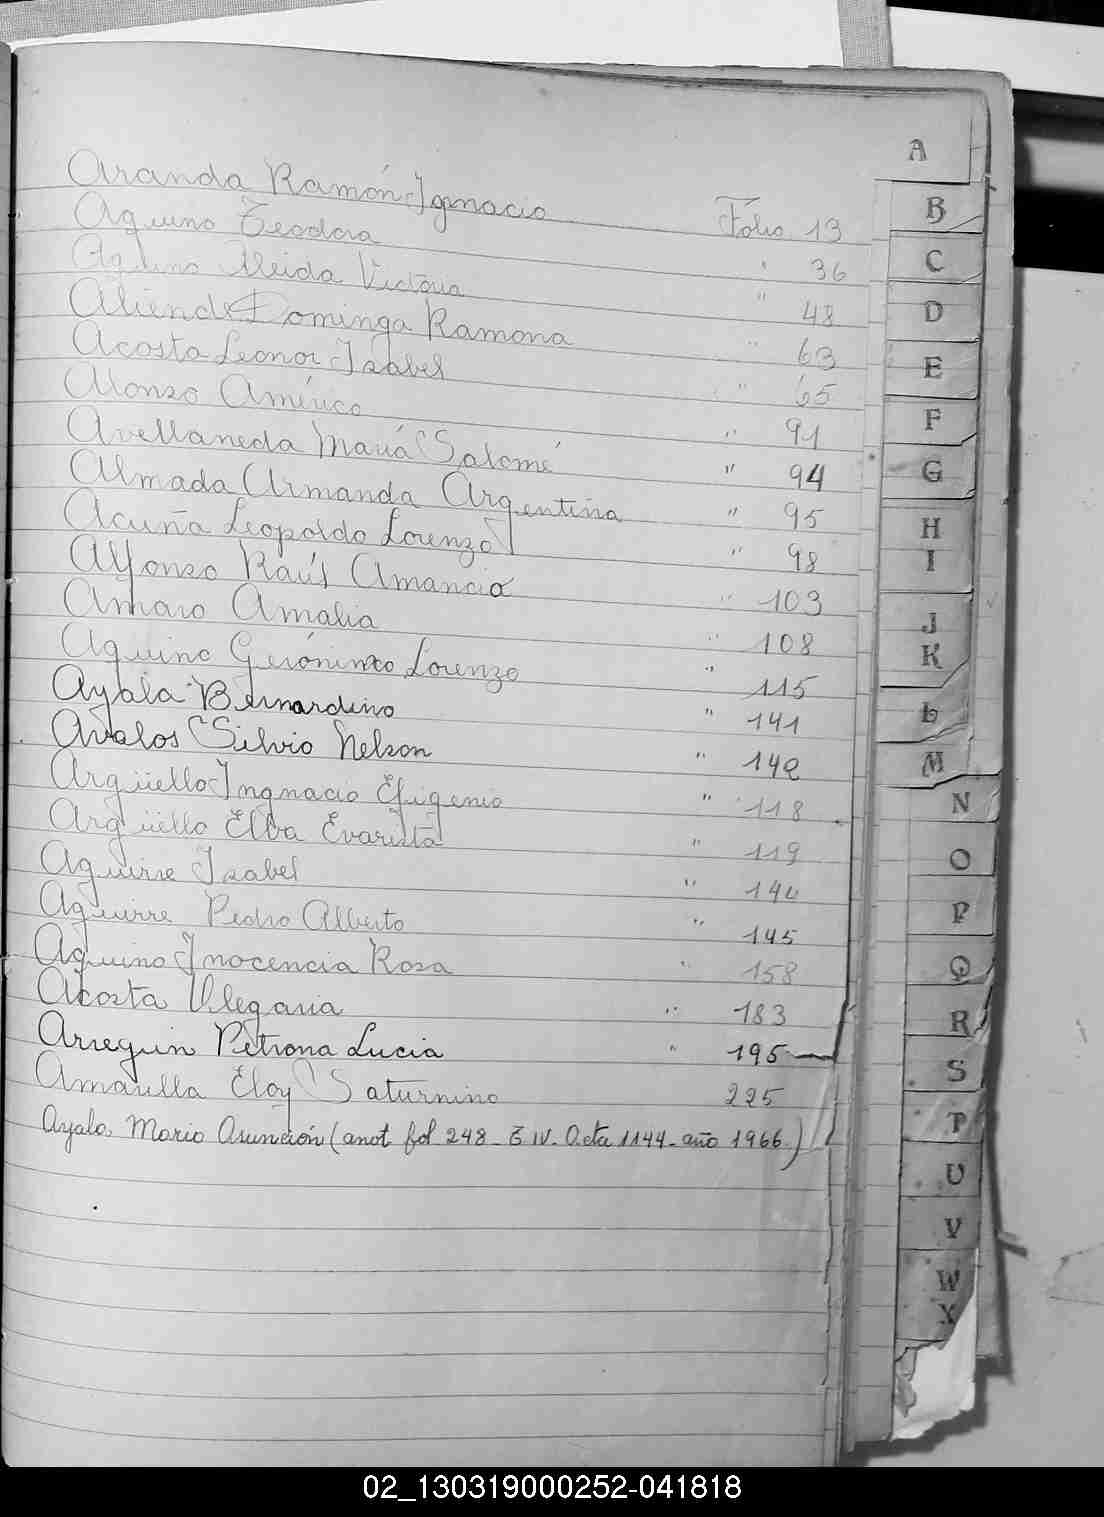 Aranda Ramón Ignacio Folio 13
Aquino Teodora " 36
Aquino Nleida Victoria " 48
Aliend Dominga Ramona " 63
Acosta Leonor Isabel " 65
Alonso Américo " 91
Avellaneda María Salomé " 94
Almada Armanda Argentina " 95
Acuña Leopoldo Lorenzo " 98
Alfonso Raúl Amancio " 103
Amaro Amalia " 108
Aquino Gerónimo Lorenzo " 115
Ayala Bernardino " 141
Avalos Silvio Nelson " 142
Argüello Ingnacio Efigenio " 118
Argüello Elba Evarista " 119
Aguirre Isabel " 140
Aguirre Pedro Alberto " 145
Aquino Inocencia Rosa " 158
Acosta Ulegaria " 183
Arreguin Petrona Lucia " 195
Amarilla Eloy Saturnino 225
Ayala Mario Asunción (anot fol 248 - T IV. Acta 1144 - año 1966.)
A
B
C
D
E
F
G
H
I
J
K
L
M
N
O
P
Q
R
S
T
U
V
W
X
02_130319000252-041818